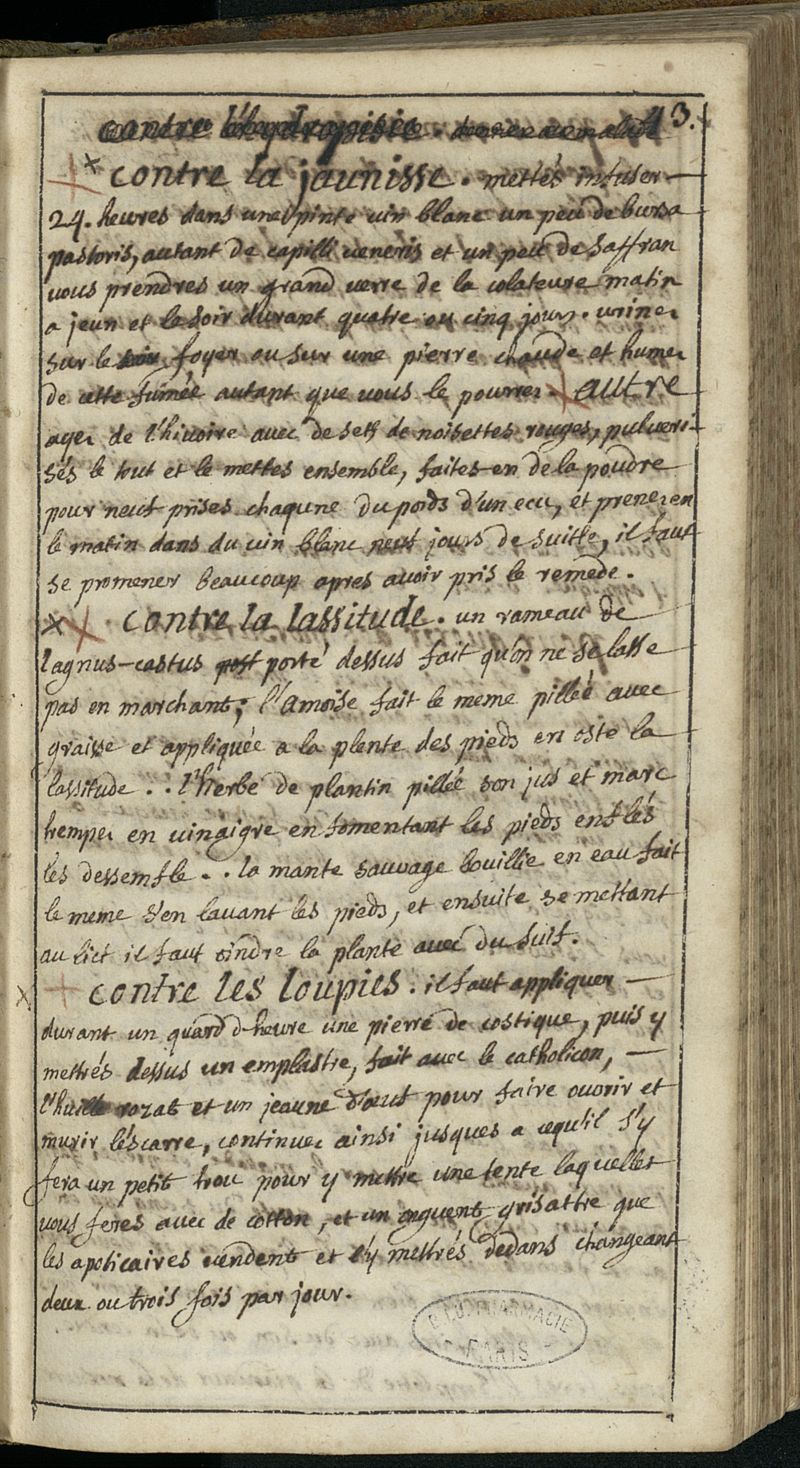 contre l'hydropisie. 43.
contre la jaunisse. mettés infuser
24. heures dans une pinte vin blanc un peu de bursa
pastoris, autant de capilli veneris et un peu de saffran
vous prendres un grand verre de la colateure matin
a jeun et le soir durant quatre ou cinq jours. urinez
sur le foyer ou sur une pierre chaude et humez
de cette fumée autant que vous le pourrez. autre
ayez de l'hivoire avec de sets de noisettes rouges, pulveri-
sés le tout et le mettes ensemble, faites-en de la poudre
pour neuf prises chaqune du poids d'un ecu, et prenez en
le matin dans du vin blanc neuf jours de suitte, il faut
se promener beaucoup apres avoir pris le remede.
contre la lassitude. un rameau de
lagnus-castus porté dessus fait qu'on ne se lasse
pas en marchant; l'amoise fait le meme pillée avec
graisse et appliquée a la plente des pieds en oste la
lassitude.. l'herbe de plantin pillée son jus et marc
tremper en vinaigre en fomentant les pieds enflés
les dessemfle.. la mante sauvage bouillie en eau fait
le meme s'en lavant les pieds, et ensuite se mettant
au lict il faut oindre la plante avec du suif.
contre les loupies. il faut appliquer
durant un quard d-heure une pierre de costique, puis y
mettrés dessus un emplastre, fait avec le catholicon,
l'huille rozat et un jeaune d'œuf pour faire ouvrir et
murir l'éscarre, continuez ainsi jusques a cequ'il s'y
fera un petit trou pour y mettre une tente laquelles
vous feres avec de cotton, et un onguent grisattre que
les apoticaires vendent et l'y mettrés dedans changeant
deux ou trois fois par jour.
PHARMACIE
PARIS